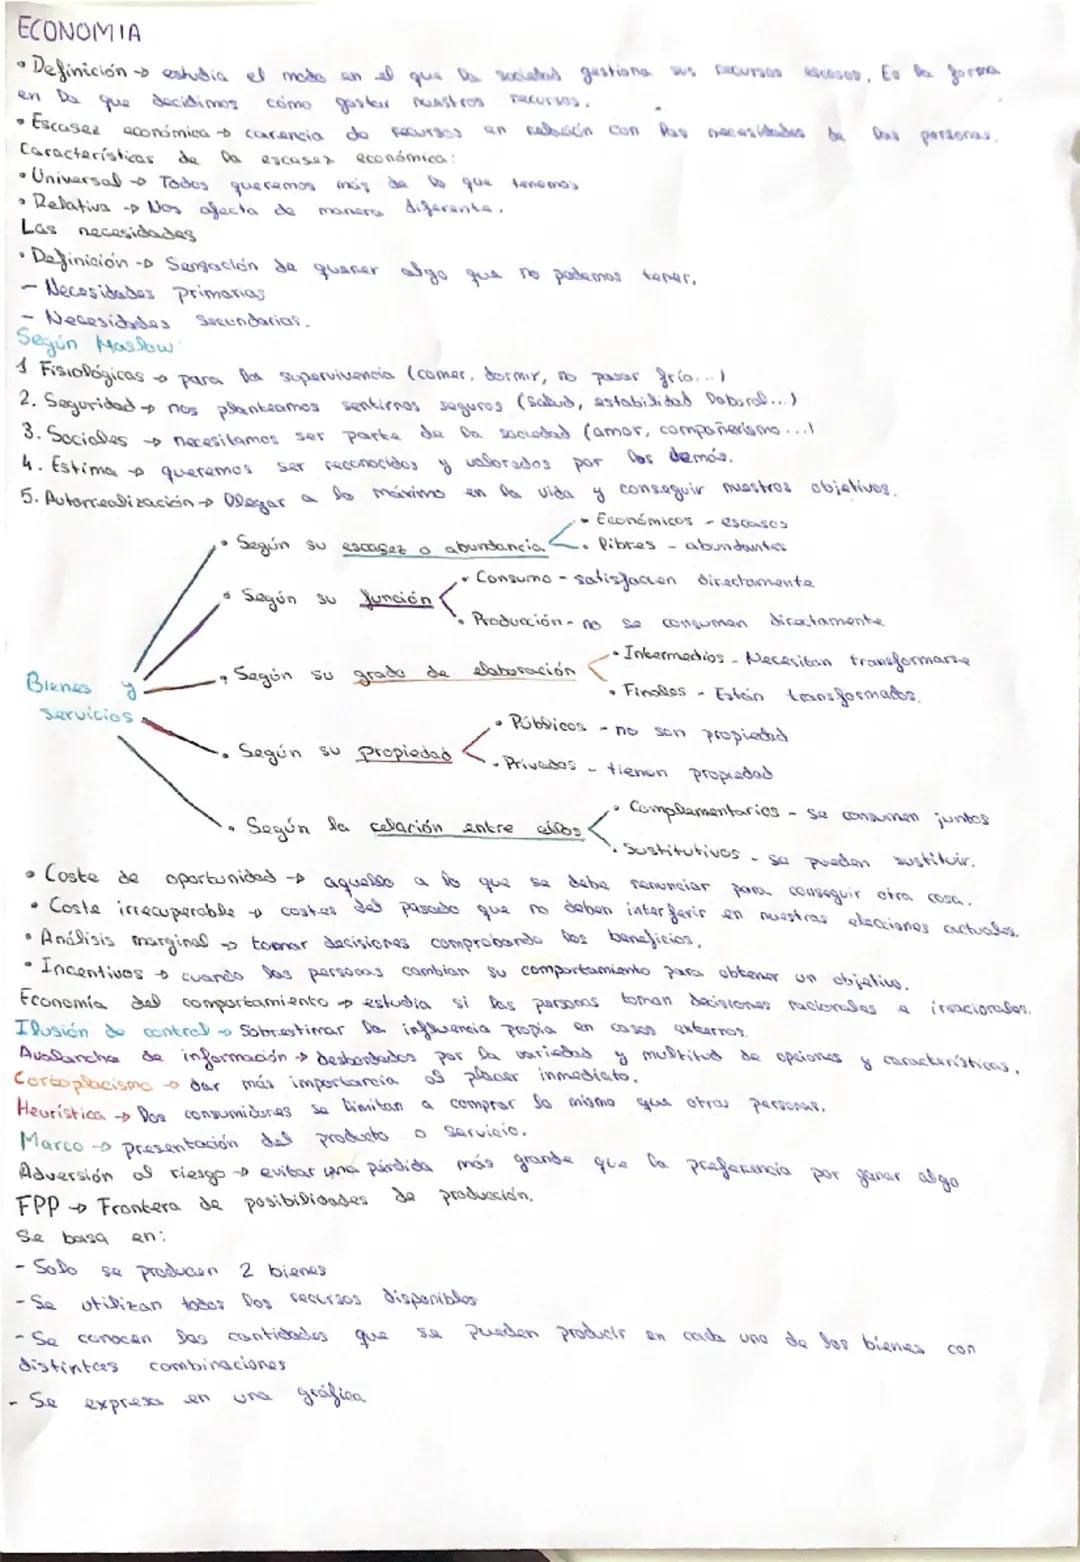 ECONOMIA
• Definición → estudia el modo en el que la sociedad gestiona sus recursos escasos, Es la forma
en la que decidimos cómo gastar nuestros recursos.
• Escasez económica → carencia de recursos en relación con las necesidades de las personas.
Características de la escasez económica:
• Universal → Todos queremos más de lo que tenemos
• Relativa → Nos afecta de manera diferente.
Las necesidades
• Definición → Sensación de querer algo que no podemos tener.
- Necesidades primarias
- Necesidades secundarias.
Según Maslow:
1 Fisiológicas → para la supervivencia (comer, dormir, no pasar frío...)
2. Seguridad → nos planteamos sentirnos seguros (salud, estabilidad laboral...)
3. Sociales → necesitamos ser parte de la sociedad (amor, compañerismo...)
4. Estima → queremos ser reconocidos y valorados por los demás.
5. Autorrealización → llegar a lo máximo en la vida y conseguir nuestros objetivos.
Bienes y
servicios
• Según su escasez o abundancia
• Económicos - escasos
• libres - abundantes
• Según su función
• Consumo - satisfaccen directamente
• Producción - no se consumen directamente
• Según su grado de elaboración
• Intermedios - Necesitan transformarse
• Finales - Están transformados.
• Según su propiedad
• Públicos - no son propiedad
• Privados - tienen propiedad
• Según la relación entre ellos
• Complementarios - se consumen juntos
• Sustitutivos - se pueden sustituir.
• Coste de oportunidad → aquello a lo que se debe renunciar para conseguir otra cosa.
• Coste irrecuperable → costes del pasado que no deben interferir en nuestras elecciones actuales.
• Análisis marginal → tomar decisiones comprobando los beneficios.
• Incentivos → cuando las personas cambian su comportamiento para obtener un objetivo.
Economía del comportamiento → estudia si las personas toman decisiones racionales e irracionales.
Ilusión de control → Sobrestimar la influencia propia en casos externos.
Avalancha de información → desbordados por la variedad y multitud de opciones y características.
Cortoplacismo → dar más importancia al placer inmediato.
Heurística → los consumidores se limitan a comprar lo mismo que otras personas.
Marco → presentación del producto o servicio.
Adversión al riesgo → evitar una pérdida más grande que la preferencia por ganar algo
FPP → Frontera de posibilidades de producción.
Se basa en:
- Solo se producen 2 bienes
- Se utilizan todos los recursos disponibles
- Se conocen las cantidades que se pueden producir en cada uno de los bienes con
distintas combinaciones
- Se expresa en una gráfica